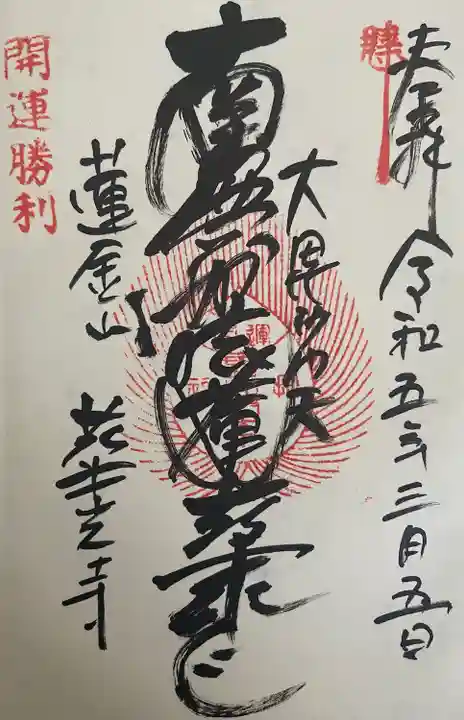 奉拝 令和五年三月五日
大毘沙門天
南無妙法蓮華経
蓮金山
寺
開運勝利